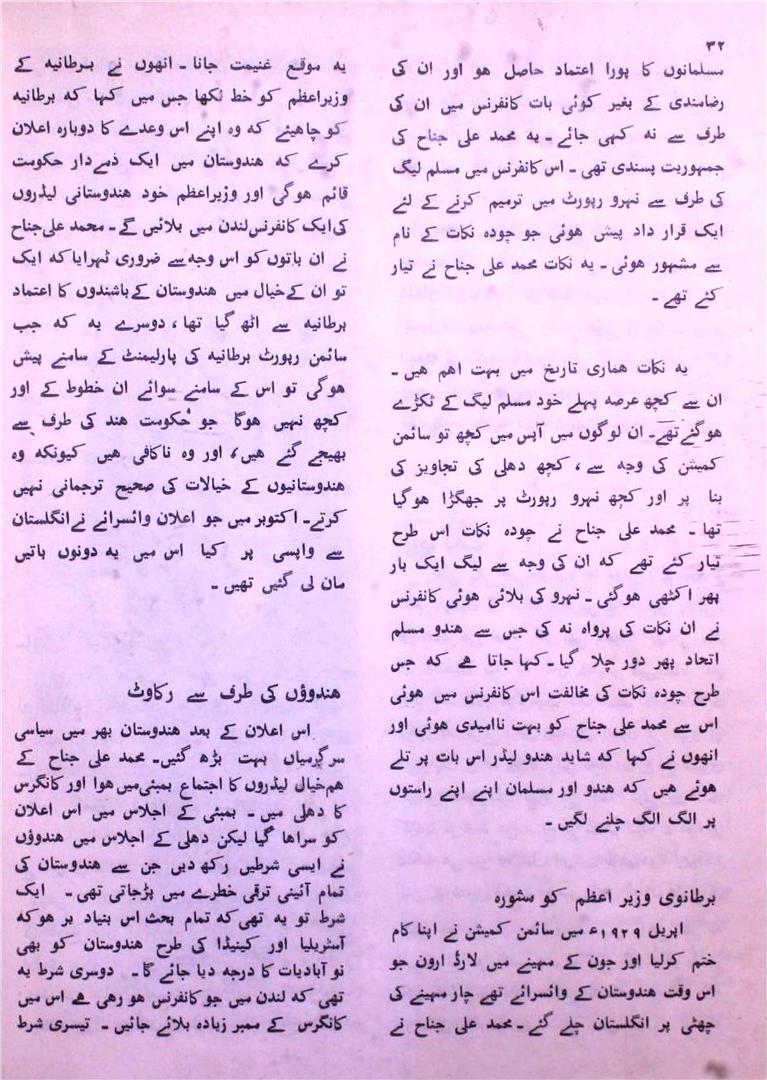 ۳۲
مسلمانوں کا پورا اعتماد حاصل ہو اور ان کی
رضامندی کے بغیر کوئی بات کانفرنس میں ان کی
طرف سے نہ کہی جائے ۔ یہ محمد علی جناح کی
جمہوریت پسندی تھی ۔ اس کانفرنس میں مسلم لیگ
کی طرف سے نہرو رپورٹ میں ترمیم کرنے کے لئے
ایک قرار داد پیش ہوئی جو چودہ نکات کے نام
سے مشہور ہوئی ۔ یہ نکات محمد علی جناح نے تیار
کئے تھے ۔
یہ نکات ہماری تاریخ میں بہت اہم ہیں ۔
ان سے کچھ عرصہ پہلے خود مسلم لیگ کے ٹکڑے
ہوگئے تھے ۔ ان لوگوں میں آپس میں کچھ تو سائمن
کمیشن کی وجہ سے ، کچھ دھلی کی تجاویز کی
بنا پر اور کچھ نہرو رپورٹ پر جھگڑا ہوگیا
تھا ۔ محمد علی جناح نے چودہ نکات اس طرح
تیار کئے تھے کہ ان کی وجہ سے لیگ ایک بار
پھر اکٹھی ہوگئی ۔ نہرو کی بلائی ہوئی کانفرنس
نے ان نکات کی پرواہ نہ کی جس سے ہندو مسلم
اتحاد پھر دور چلا گیا ۔ کہا جاتا ہے کہ جس
طرح چودہ نکات کی مخالفت اس کانفرنس میں ہوئی
اس سے محمد علی جناح کو بہت ناامیدی ہوئی اور
انھوں نے کہا کہ شاید ہندو لیڈر اس بات پر تلے
ہوئے ہیں کہ ہندو اور مسلمان اپنے اپنے راستوں
پر الگ الگ چلنے لگیں ۔
برطانوی وزیر اعظم کو مشورہ
اپریل ۱۹۲۹ء میں سائمن کمیشن نے اپنا کام
ختم کرلیا اور جون کے مہینے میں لارڈ ارون جو
اس وقت ہندوستان کے وائسرائے تھے چار مہینے کی
چھٹی پر انگلستان چلے گئے ۔ محمد علی جناح نے
یہ موقع غنیمت جانا ۔ انھوں نے برطانیہ کے
وزیراعظم کو خط لکھا جس میں کہا کہ برطانیہ
کو چاہیئے کہ وہ اپنے اس وعدے کا دوبارہ اعلان
کرے کہ ہندوستان میں ایک ذمےدار حکومت
قائم ہوگی اور وزیراعظم خود ہندوستانی لیڈروں
کی ایک کانفرنس لندن میں بلائیں گے ۔ محمد علی جناح
نے ان باتوں کو اس وجہ سے ضروری ٹھہرایا کہ ایک
تو ان کے خیال میں ہندوستان کے باشندوں کا اعتماد
برطانیہ سے اٹھ گیا تھا ، دوسرے یہ کہ جب
سائمن رپورٹ برطانیہ کی پارلیمنٹ کے سامنے پیش
ہوگی تو اس کے سامنے سوائے ان خطوط کے اور
کچھ نہیں ہوگا جو حکومت ہند کی طرف سے
بھیجے گئے ہیں ، اور وہ ناکافی ہیں کیونکہ وہ
ہندوستانیوں کے خیالات کی صحیح ترجمانی نہیں
کرتے ۔ اکتوبر میں جو اعلان وائسرائے نے انگلستان
سے واپسی پر کیا اس میں یہ دونوں باتیں
مان لی گئیں تھیں ۔
ہندوؤں کی طرف سے رکاوٹ
اس اعلان کے بعد ہندوستان بھر میں سیاسی
سرگرمیاں بہت بڑھ گئیں ۔ محمد علی جناح کے
ہم خیال لیڈروں کا اجتماع بمبئی میں ہوا اور کانگرس
کا دھلی میں ۔ بمبئی کے اجلاس میں اس اعلان
کو سراہا گیا لیکن دھلی کے اجلاس میں ہندوؤں
نے ایسی شرطیں رکھ دیں جن سے ہندوستان کی
تمام آئینی ترقی خطرے میں پڑجاتی تھی ۔ ایک
شرط تو یہ تھی کہ تمام بحث اس بنیاد پر ہو کہ
آسٹریلیا اور کینیڈا کی طرح ہندوستان کو بھی
نو آبادیات کا درجہ دیا جائے گا ۔ دوسری شرط یہ
تھی کہ لندن میں جو کانفرنس ہو رہی ہے اس میں
کانگرس کے ممبر زیادہ بلائے جائیں ۔ تیسری شرط